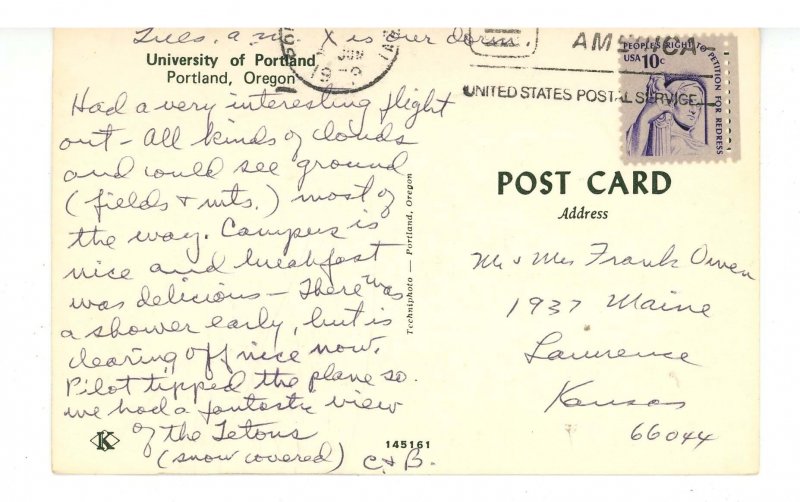 Tues. a.m. X is our dorm.
University of Portland
Portland, Oregon
Had a very interesting flight
out - All kinds of clouds
and could see ground
(fields & mts.) most of
the way. Campus is
nice and breakfast
was delicious - There was
a shower early, but is
clearing off nice now.
Pilot tipped the plane so
we had a fantastic view
of the Tetons
(snow covered) C & B.
K
145161
Techniphoto — Portland, Oregon
JUN
AMERICA
UNITED STATES POSTAL SERVICE
PEOPLE'S RIGHT TO PETITION FOR REDRESS
USA 10c
POST CARD
Address
Mr & Mrs Frank Owen
1937 Maine
Lawrence
Kansas
66044